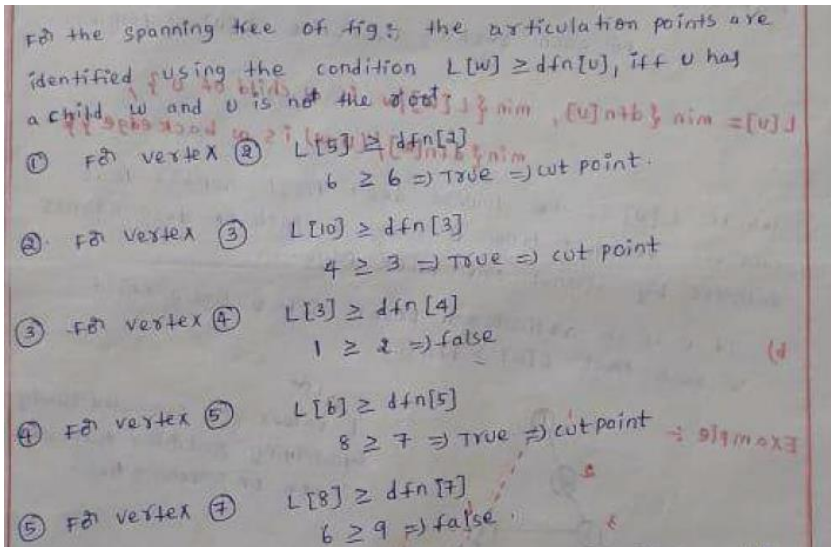 For the spanning tree of fig:, the articulation points are
identified using the condition L[w] ≥ dfn[u], iff u has
a child w and u is not the root.
① For vertex ② L[5] ≥ dfn[2]
6 ≥ 6 => True => cut point.
②. For vertex ③ L[10] ≥ dfn[3]
4 ≥ 3 => True => cut point
③ For vertex ④ L[3] ≥ dfn[4]
1 ≥ 2 => false
④ For vertex ⑤ L[6] ≥ dfn[5]
8 ≥ 7 => True => cut point
⑤ For vertex ⑦ L[8] ≥ dfn[7]
6 ≥ 9 => false.